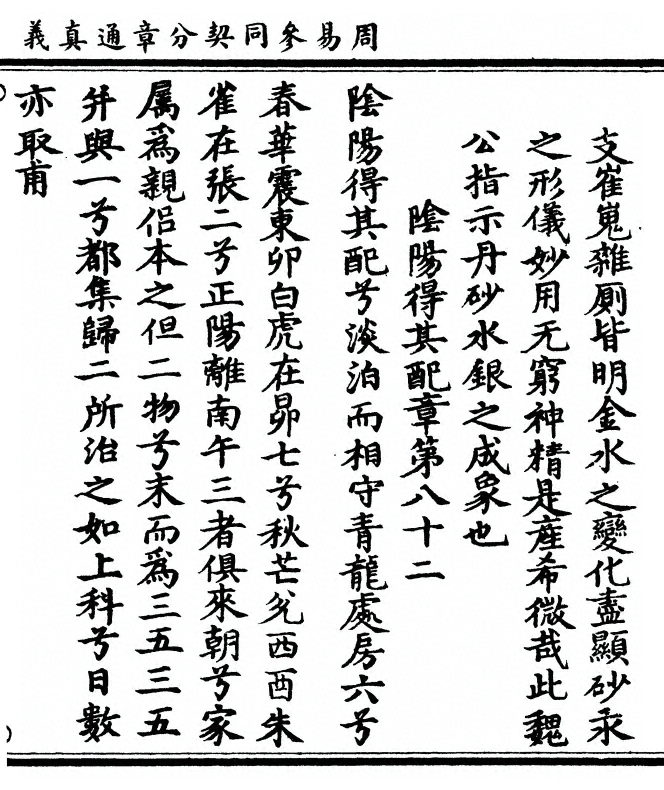 周易參同契分章通真義
支崔嵬雜厠皆明金水之變化盡顯砂汞
之形儀妙用无窮神精是産希微哉此魏
公指示丹砂水銀之成象也
陰陽得其配章第八十二
陰陽得其配兮淡泊而相守青龍處房六兮
春華震東卯白虎在昴七兮秋芒兊西酉朱
雀在張二兮正陽離南午三者俱來朝兮家
屬為親侶本之但二物兮末而為三五三五
并與一兮都集歸二所治之如上科兮日數
亦取甫